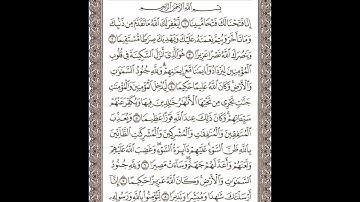 بِسْمِ اللَّهِ الرَّحْمَٰنِ الرَّحِيمِ
إِنَّا فَتَحْنَا لَكَ فَتْحًا مُّبِينًا ١ لِّيَغْفِرَ لَكَ اللَّهُ مَا تَقَدَّمَ مِن ذَنۢبِكَ
وَمَا تَأَخَّرَ وَيُتِمَّ نِعْمَتَهُ عَلَيْكَ وَيَهْدِيَكَ صِرَاطًا مُّسْتَقِيمًا ٢
وَيَنصُرَكَ اللَّهُ نَصْرًا عَزِيزًا ٣ هُوَ الَّذِي أَنزَلَ السَّكِينَةَ فِي قُلُوبِ
الْمُؤْمِنِينَ لِيَزْدَادُوا إِيمَانًا مَّعَ إِيمَانِهِمْ وَلِلَّهِ جُنُودُ السَّمَاوَاتِ
وَالْأَرْضِ وَكَانَ اللَّهُ عَلِيمًا حَكِيمًا ٤ لِّيُدْخِلَ الْمُؤْمِنِينَ وَالْمُؤْمِنَاتِ
جَنَّاتٍ تَجْرِي مِن تَحْتِهَا الْأَنْهَارُ خَالِدِينَ فِيهَا وَيُكَفِّرَ عَنْهُمْ
سَيِّئَاتِهِمْ وَكَانَ ذَٰلِكَ عِندَ اللَّهِ فَوْزًا عَظِيمًا ٥ وَيُعَذِّبَ
الْمُنَافِقِينَ وَالْمُنَافِقَاتِ وَالْمُشْرِكِينَ وَالْمُشْرِكَاتِ الظَّانِّينَ
بِاللَّهِ ظَنَّ السَّوْءِ عَلَيْهِمْ دَائِرَةُ السَّوْءِ وَغَضِبَ اللَّهُ عَلَيْهِمْ
وَلَعَنَهُمْ وَأَعَدَّ لَهُمْ جَهَنَّمَ وَسَاءَتْ مَصِيرًا ٦ وَلِلَّهِ جُنُودُ
السَّمَاوَاتِ وَالْأَرْضِ وَكَانَ اللَّهُ عَزِيزًا حَكِيمًا ٧ إِنَّا
أَرْسَلْنَاكَ شَاهِدًا وَمُبَشِّرًا وَنَذِيرًا ٨ لِّتُؤْمِنُوا بِاللَّهِ وَرَسُولِهِ